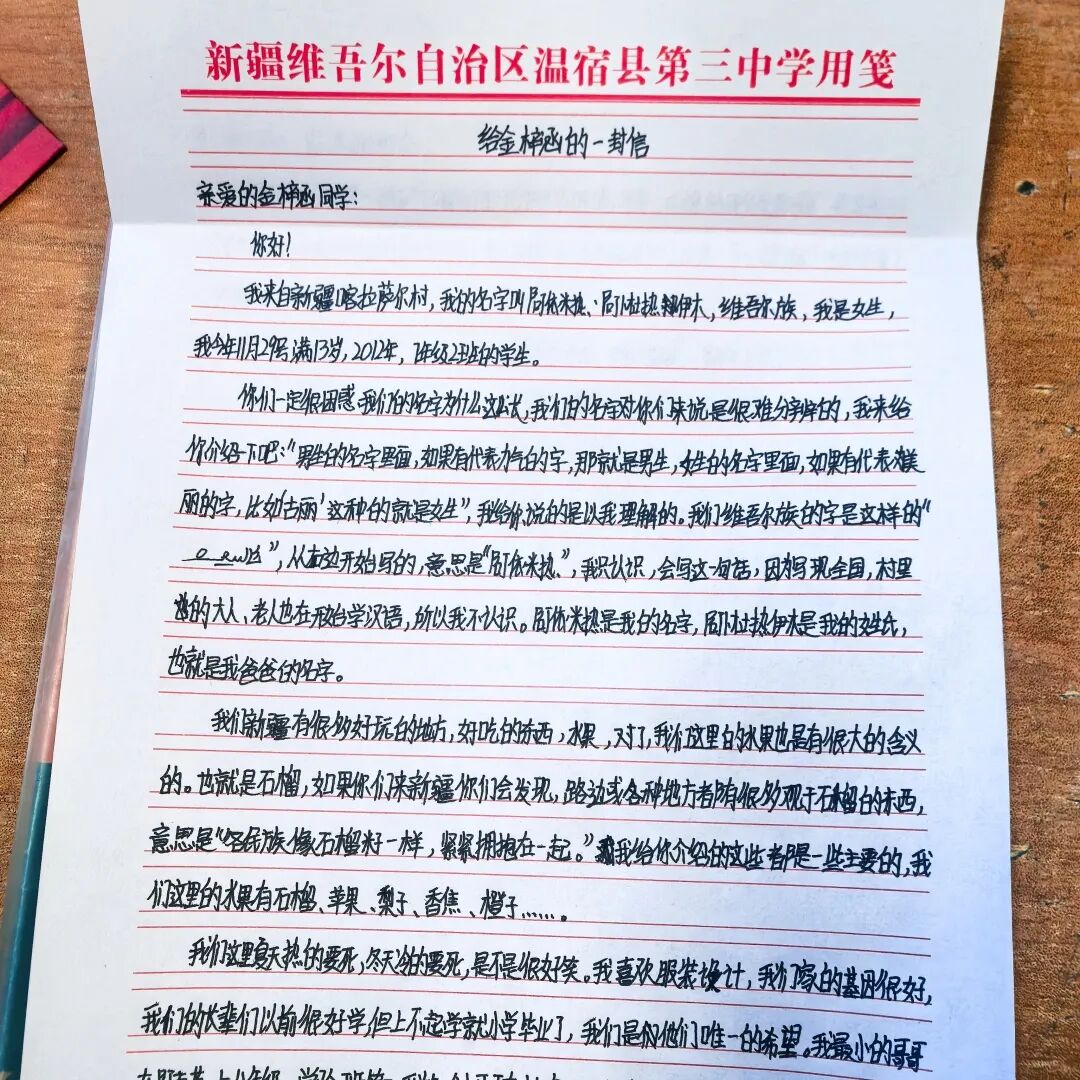 新疆维吾尔自治区温宿县第三中学用笺
给金梓涵的一封信
亲爱的金梓涵同学：
你好！
我来自新疆喀拉萨尔村，我的名字叫阿依米热·阿卜杜热伊木，维吾尔族，我是女生，
我今年11月29号满13岁，2012年，7年级2班的学生。
你们一定很困惑我们的名字为什么这么长，我们的名字对你们来说是很难分辨的，我来给
你介绍一下吧：“男生的名字里面，如果有代表力气的字，那就是男生，女生的名字里面，如果有代表美
丽的字，比如‘古丽’这种的就是女生”，我给你说的是以我理解的。我们维吾尔族的字是这样的“
”，从右边开始写的，意思是“阿依米热”，我只认识，会写这一句话，因为现全国，村里
的大人、老人也在开始学汉语，所以我不认识。阿依米热是我的名字，阿卜杜热伊木是我的姓氏，
也就是我爸爸的名字。
我们新疆有很多好玩的地方，好吃的东西，水果，对了，我们这里的水果也是有很大的含义
的。也就是石榴，如果你们来新疆你们会发现，路边或各种地方都有很多观于石榴的东西，
意思是“各民族像石榴籽一样，紧紧拥抱在一起。”我给你介绍的这些都是一些主要的，我
们这里的水果有石榴、苹果、梨子、香焦、橙子……。
我们这里夏天热的要死，冬天冷的要死，是不是很好笑。我喜欢服装设计，我们家的基因很好，
我们的长辈们以前很好学，但上不起学就小学毕业了，我们是他们唯一的希望。我最小的哥哥